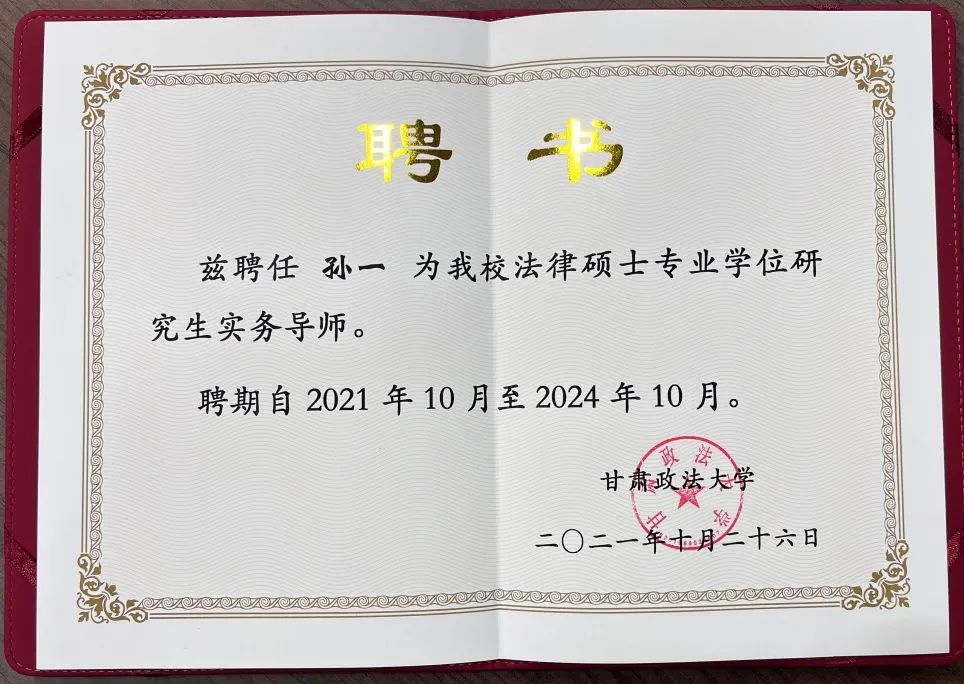 聘 书
兹聘任 孙一 为我校法律硕士专业学位研
究生实务导师。
聘期自 2021 年 10 月至 2024 年 10 月。
甘肃政法大学
甘肃政法大学
二〇二一年十月二十六日